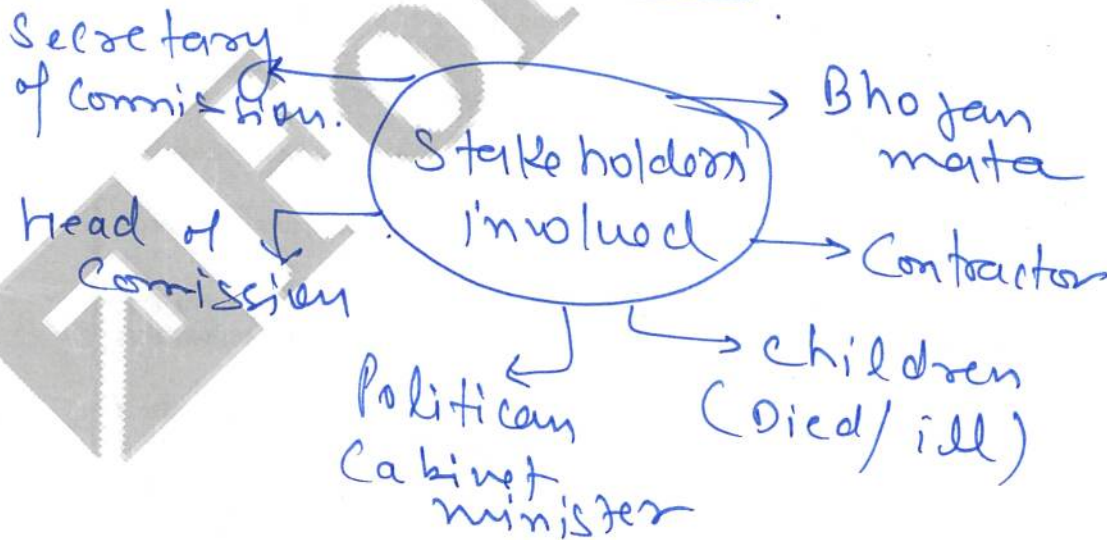 Secretary
of Commission.
Stakeholders
involved
Bhojan
mata
Head of
Comission
Contractor
Children
(Died/ill)
Politican
Cabinet
minister